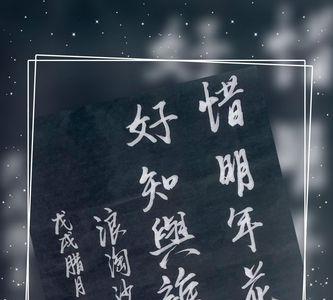 惜明年花
好知與誰
浪淘沙
戊戌腊月